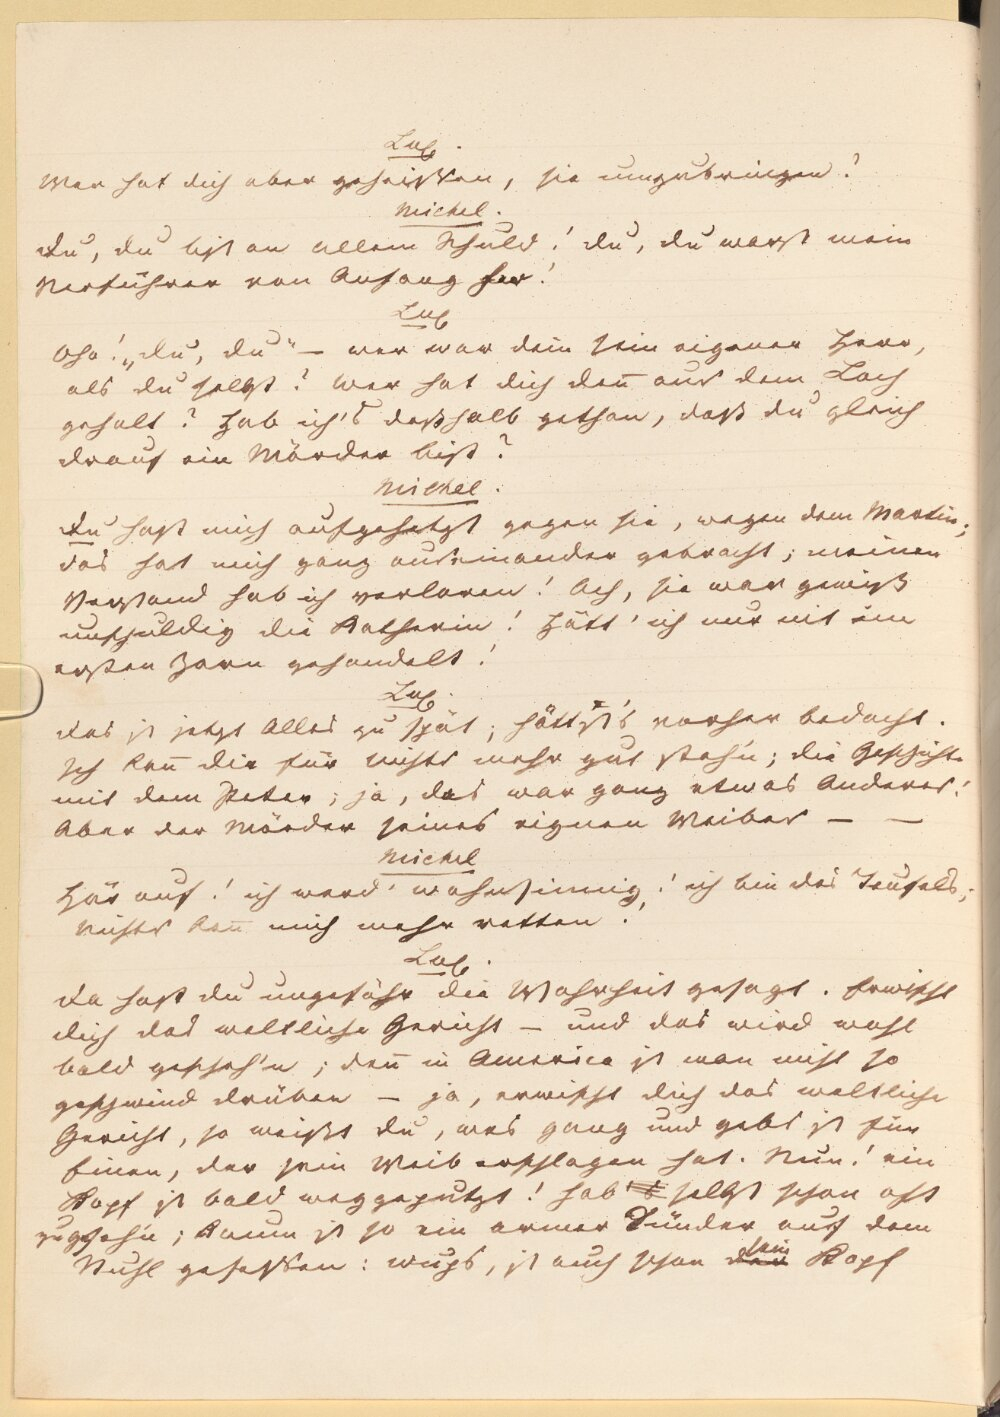 Lux.
Wer hat dich aber geheißen, sie umzubringen?
Michel.
Du, du bist an allem Schuld! du, du warst mein
Verführer von Anfang her!
Lux
Oho! „du, du“ — wer war dein sein eigener Herr,
als du selbst? Wer hat dich den̅ aus dem Loch
geholt? Hab ich's deßhalb gethan, daß du gleich
drauf ein Mörder bist?
Michel.
Du hast mich aufgehetzt gegen sie, wegen dem Martin;
das hat mich ganz auseinander gebracht; meinen
Verstand hab ich verloren! Ach, sie war gewiß
unschuldig die Katherin! Hätt' ich nur nit im
ersten Zorn gehandelt!
Lux.
Das ist jetzt Alles zu spät; hättst's vorher bedacht.
Ich kan̅ dir für nichts mehr gut steh'n; die Geschichte
mit dem Peter; ja, das war ganz etwas Anderes!
Aber der Mörder seines eignen Weibes — —
Michel
Hör auf! ich werd' wahnsinnig! ich bin des Teufels;
nichts kan̅ mich mehr retten!
Lux.
Da hast du ungefähr die Wahrheit gesagt. Erwischt
dich das weltliche Gericht — und das wird wohl
bald gescheh'n; den̅ in America ist man nicht so
geschwind drüben — ja, erwischt dich das weltliche
Gericht, so weißt du, was gang und gebe ist für
Einen, der sein Weib erschlagen hat. Nun! ein
Kopf ist bald weggeputzt! hab's selbst schon oft
zugseh'n; kaum ist so ein armer Sünder auf dem
Stuhl gesessen: wups, ist auch schon der sein Kopf